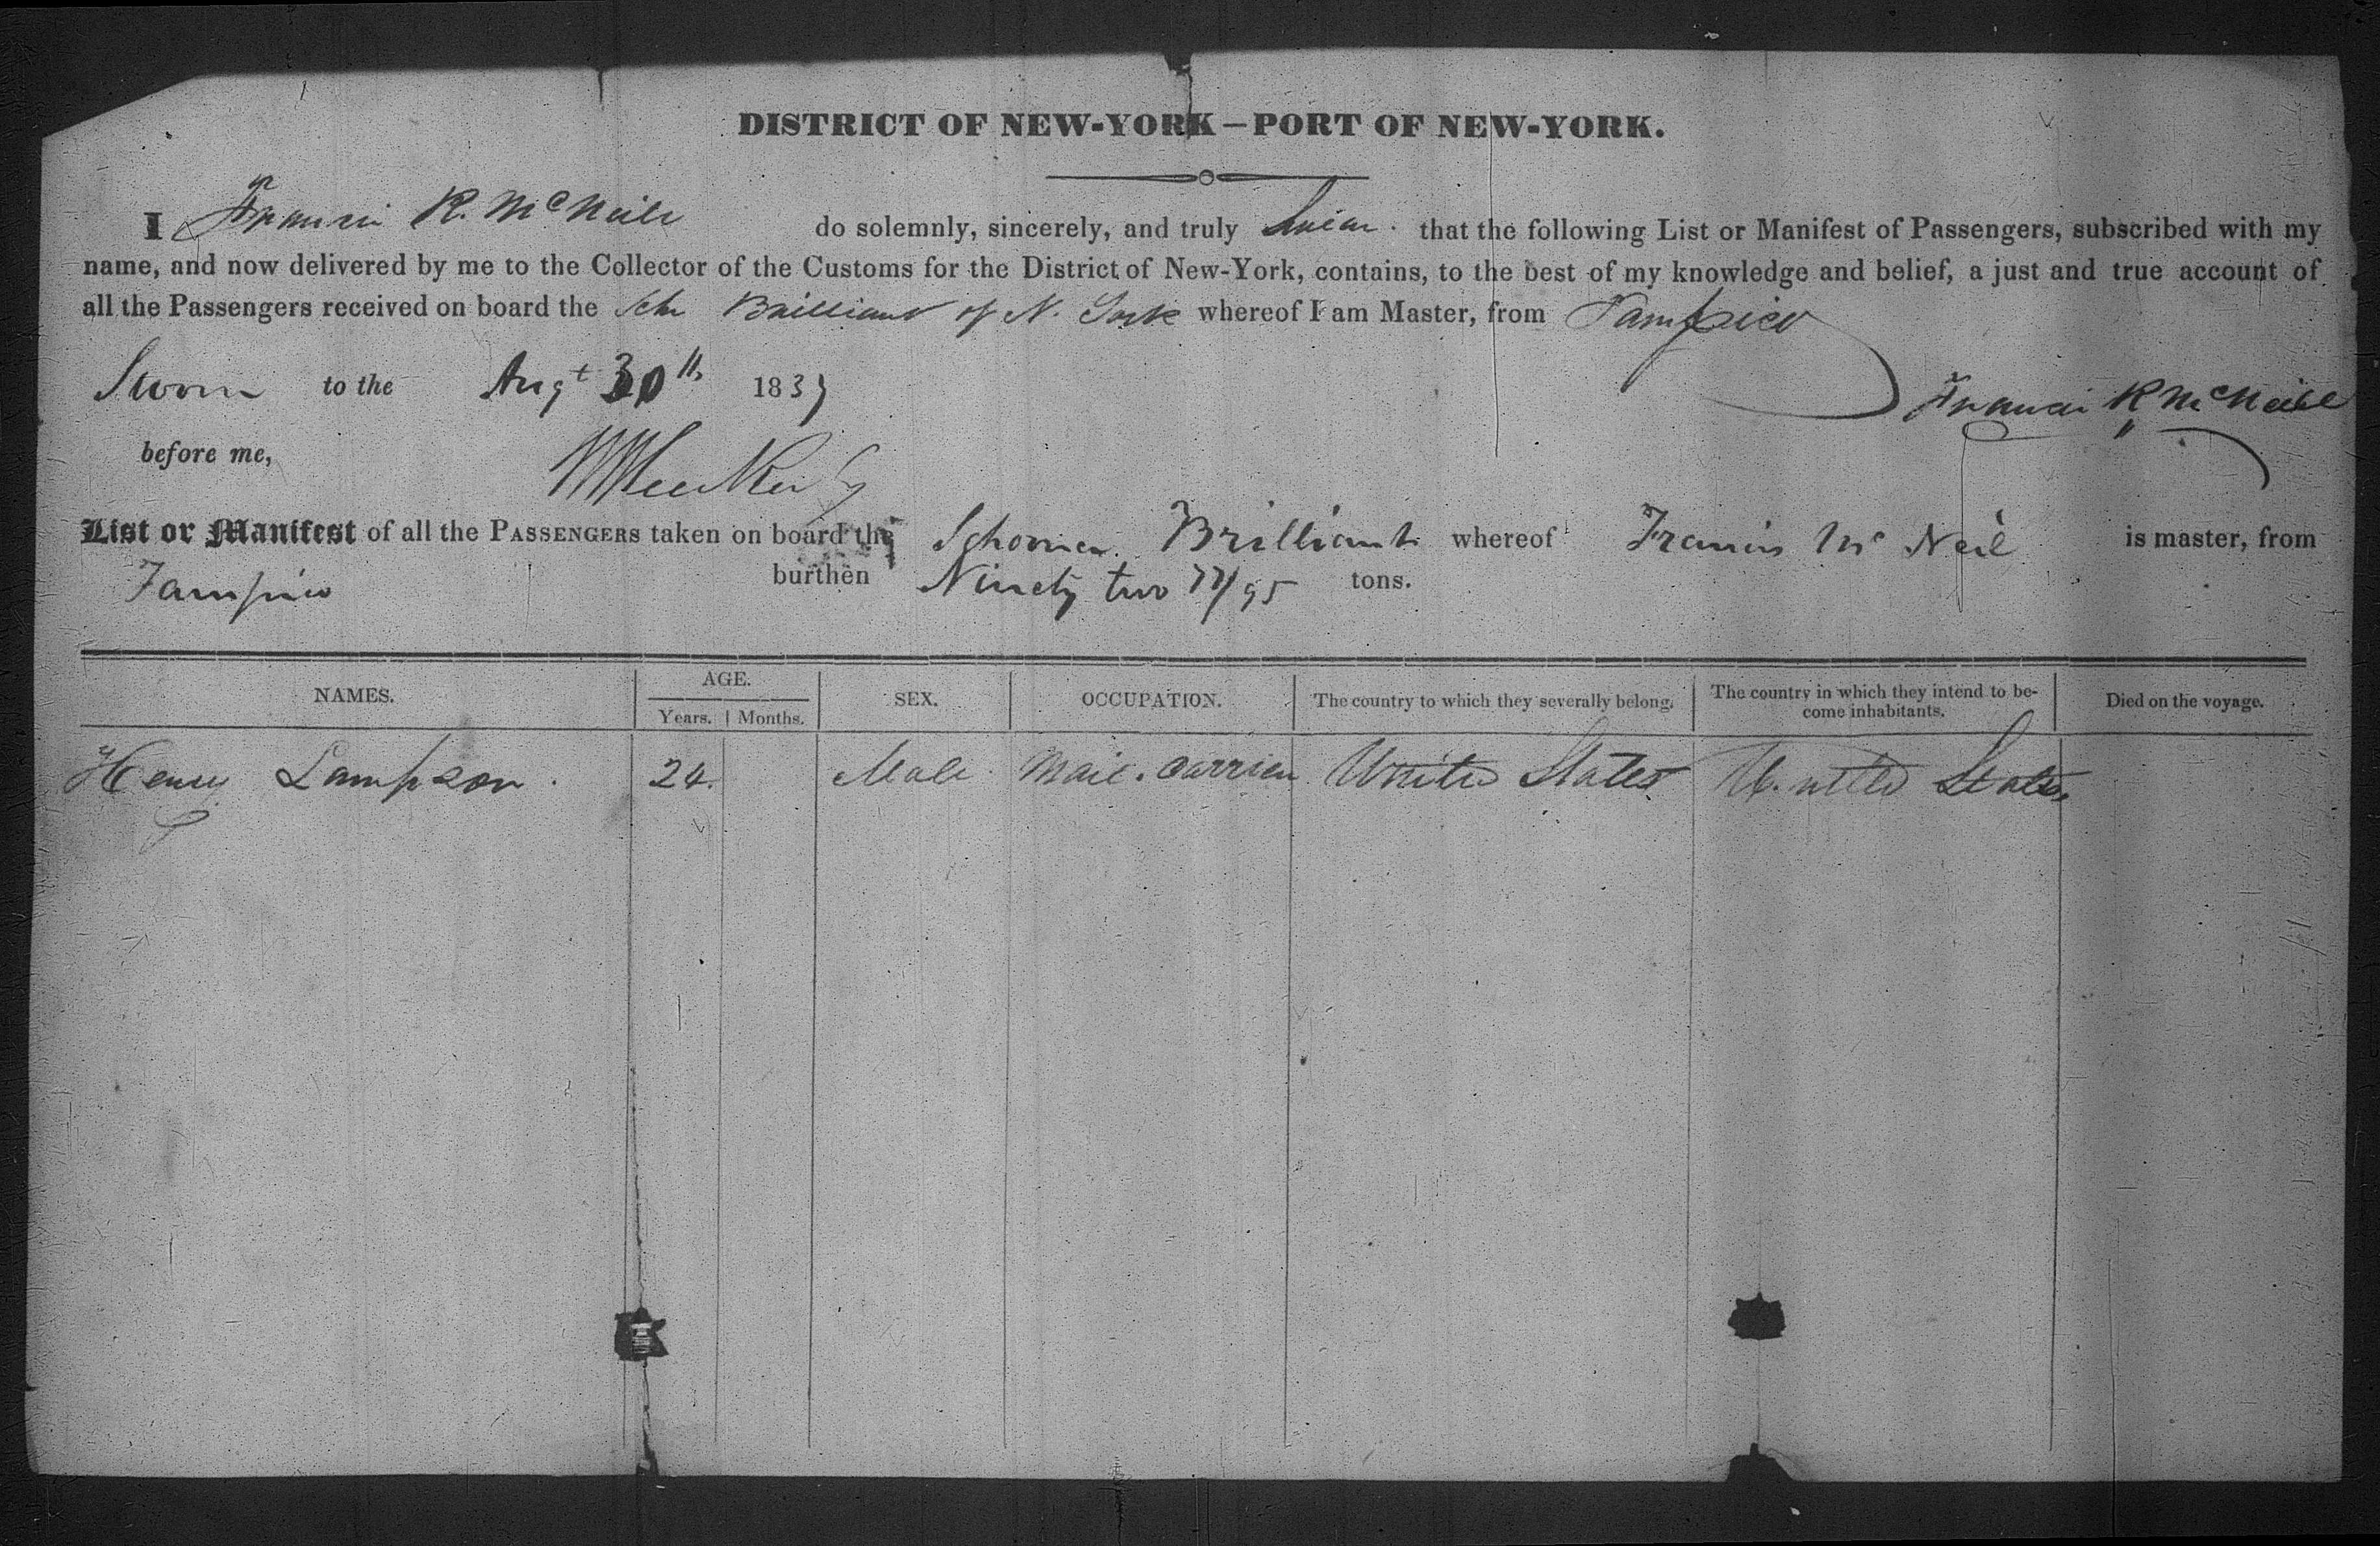 DISTRICT OF NEW-YORK—PORT OF NEW-YORK.
I Francis R. McNeile do solemnly, sincerely, and truly Swear. that the following List or Manifest of Passengers, subscribed with my
name, and now delivered by me to the Collector of the Customs for the District of New-York, contains, to the best of my knowledge and belief, a just and true account of
all the Passengers received on board the Schr Brilliant of N. York whereof I am Master, from Tampico
Sworn to the Augt 30th 1837 Francis R McNeile
before me,
List or Manifest of all the PASSENGERS taken on board the Schooner. Brilliant whereof Francis Mc Neil is master, from
Tampico burthen Ninety two 77/95 tons.
NAMES. AGE. SEX. OCCUPATION. The country to which they severally belong. The country in which they intend to be- Died on the voyage.
Years. Months. come inhabitants.
Henry Lampson. 24. Male Mail. Carrier United States United States